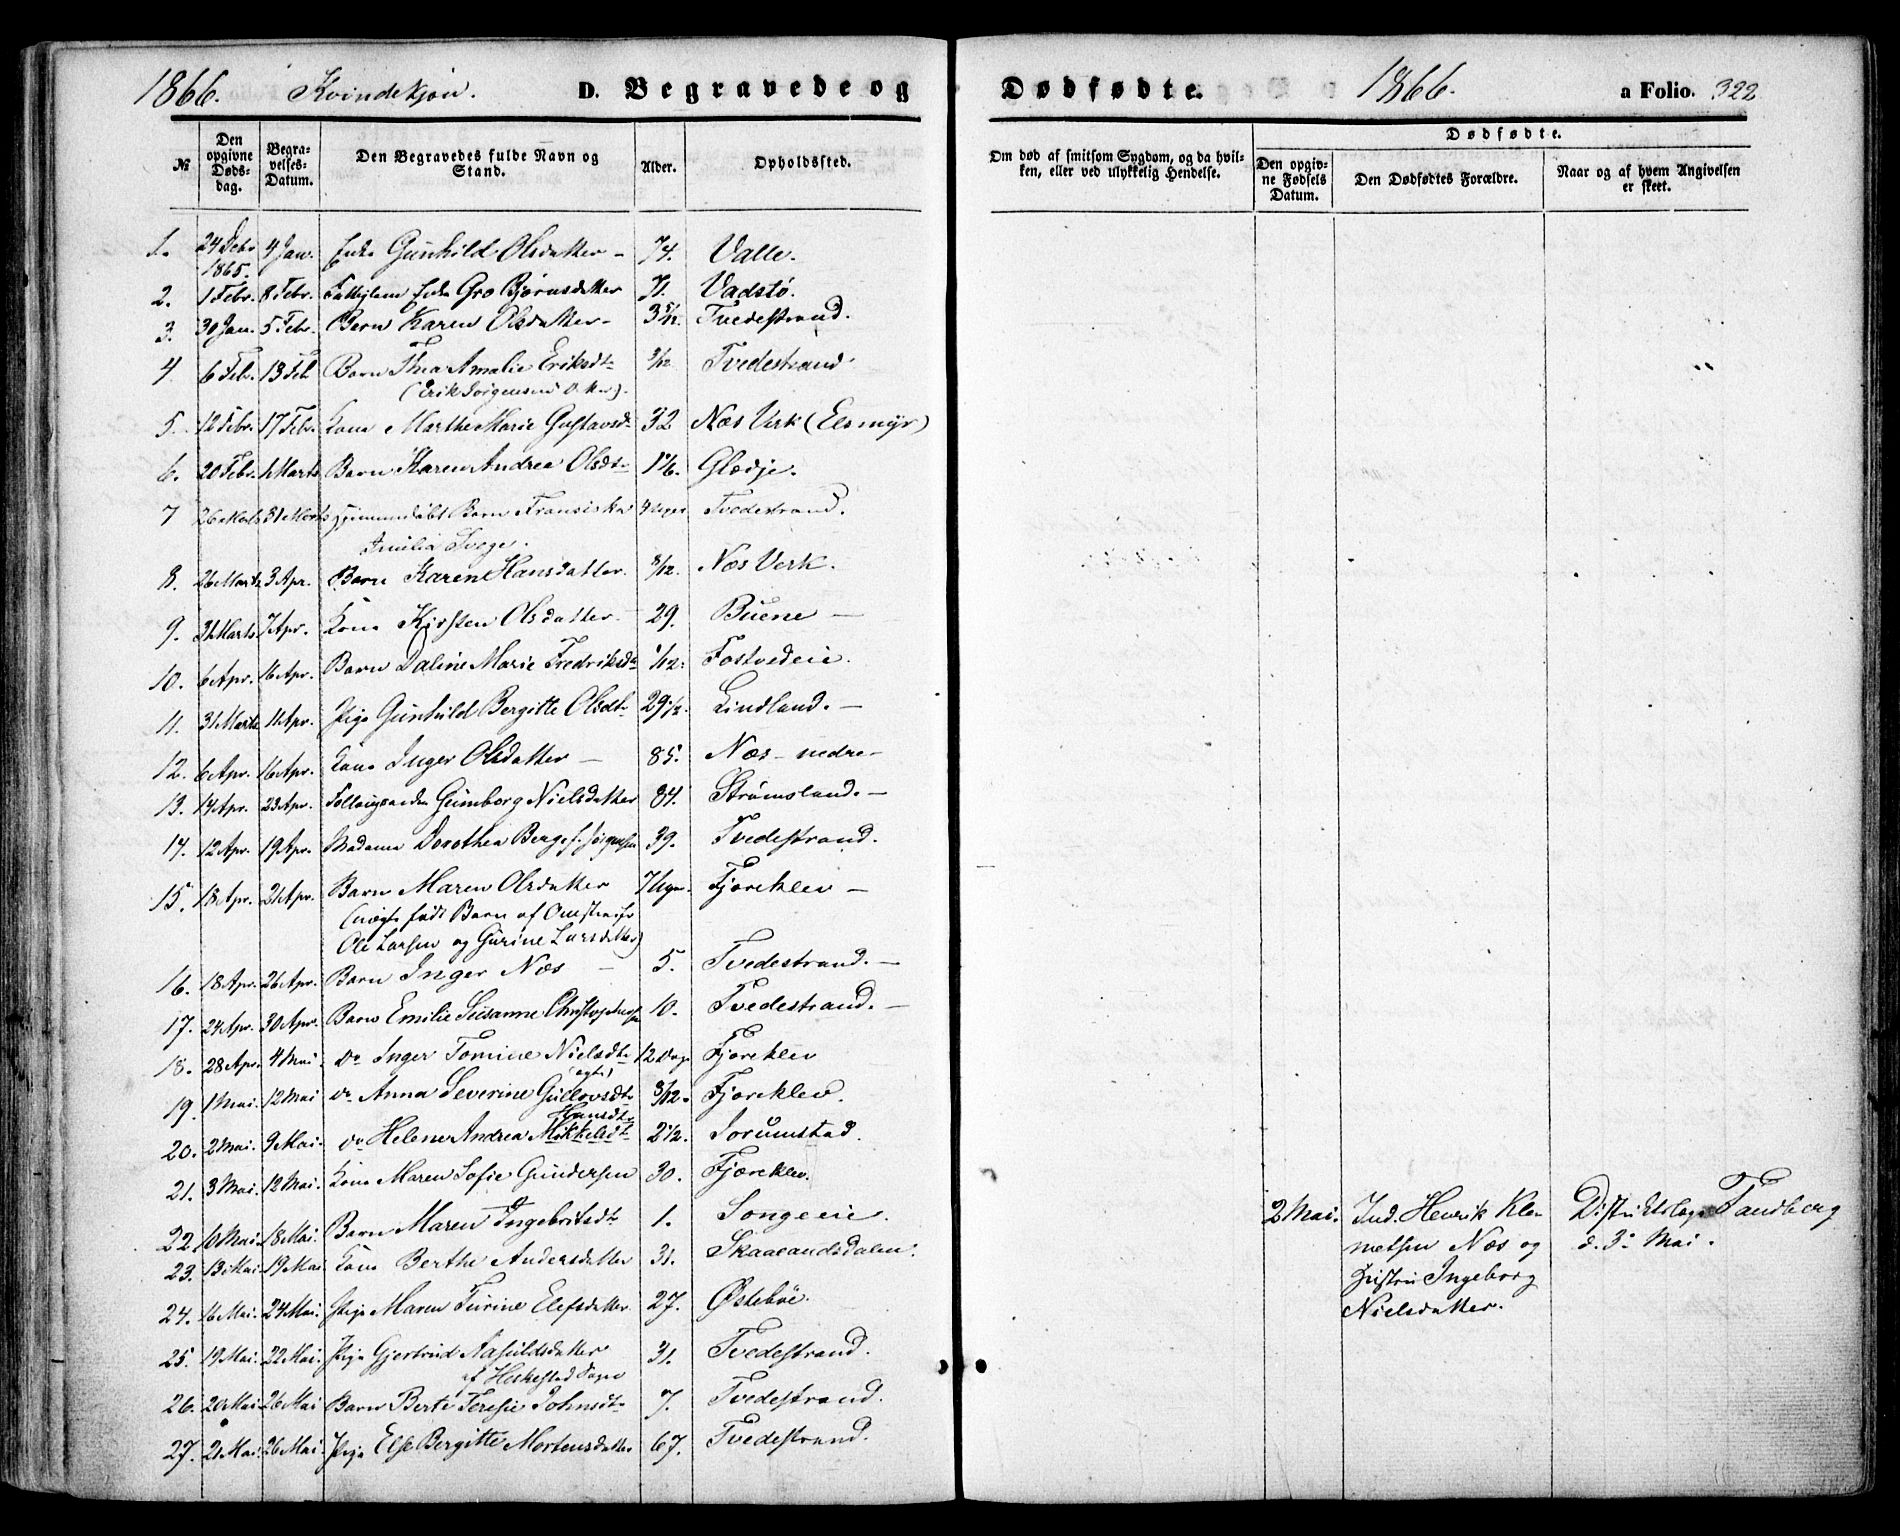 1866. Kvindekjøn. D. Begravede og Dødfødte. 1866. a Folio. 322
№ Den opgivne Døds-dag. Begra-velses-Datum. Den Begravedes fulde Navn og Stand. Alder. Opholdssted.
Om død af smitsom Sygdom, og da hvil-ken, eller ved ulykkelig Hendelse.
Dødfødte.
Den opgiv-ne Fødsels Datum. Den Dødfødtes Forældre. Naar og af hvem Angivelsen er skeet.
1. 24 Debr 1865. 4 Jan. Enke Gunhild Olsdatter – 74. Valle.
2. 1 Febr. 8 Febr. Fattiglem Enke Gro Bjørnsdatter 71. Vadstø.
3. 30 Jan. 5 Febr. Barn Karen Olsdatter – 3 5/12. Tvedestrand.
4 6 Feb. 13 Feb Barn Thea Amalie Eriksdt 3/12 Tvedestrand
(Erik Jørgensens Datter).
5. 12 Febr. 17 Febr. Kone Marthe Marie Gustavsd 32 Næs Verk (Elsmyr)
6. 20 Febr. 1 Marts Barn Karen Andrea Olsdt 1 1/6. Glødje.
7 26 Marts 31 Marts hjemmedøbt Barn Fransiska Tvedestrand.
Amilia Svege.
8. 26 Marts 3 Apr. Barn Karen Hansdatter. 8/12. Næs Verk.
9. 31 Marts 7 Apr. Kone Kirsten Olsdatter 29. Buene –
10. 6 Apr. 16 Apr. Barn Daline Marie Fredriksd 1/12. Fostvedeie.
11. 31 Marts 11 Apr. Pige Gunhild Bergitte Olsdt 29 1/2. Lindland. –
12. 6 Apr. 16 Apr. Kone Inger Olsdatter – 85. Næs – nedre –
13. 14 Apr. 23 Apr. Gunborg Nielsdatter 84. Strømsland. –
14. 12 Apr. 19 Apr. Madame Dorothea Berge f. Jørgensen 39. Tvedestrand.
15. 18 Apr. 21 Apr. Barn Maren Olsdatter 7 Uger. Fjæreklev –
(uægte født Barn af
Ole Larsen og Gurine Larsdatter)
16. 18 Apr. 26 Apr. Barn Inger Næs – 5. Tvedestrand. –
17. 24 Apr. 30 Apr. Barn Emilie Susanne Christophersen 10. Tvedestrand. –
18. 28 Apr. 4 Mai do Inger Tomine Nielsdt 12 Dage Fjæreklev
(ægte)
19. 1 Mai. 12 Mai do Anna Severine Gullovsdt 3/12. Fjæreklev.
Hansdt
20. 2 Mai. 9 Mai. do Helene Andrea Mikkelsdt 2 1/2. Sorumstad.
21. 3 Mai. 12 Mai. Kone Maren Sofie Gundersen 30. Fjæreklev.
22. 10 Mai. 18 Mai. Barn Maren Ingebritsdt 1. Songeeie.
23. 13 Mai. 19 Mai Kone Berthe Andersdatter 31. Skaarandsdalen.
24. 16 Mai. 24 Mai. Pige Maren Turine Elefsdatter 27. Østebøe.
25. 19 Mai. 22 Mai. Pige Gjertrud Aasuldsdatter 31. Tvedestrand.
af Hoskestad Sogn
26. 20 Mai. 26 Mai Barn Berte Teresie Johnsdt 7. Tvedestrand.
27. 21 Mai. 26 Mai. Pige Else Bergitte Mortensdatter 67. Tvedestrand.
2 Mai. Ind. Henrik Kle- Distriktslæge Tandberg
metsen Næs og d. 3 Mai.
Hustru Ingeborg
Nielsdatter.